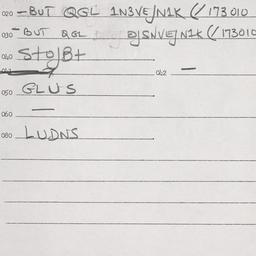 020 – BUT QGL 1N3VE/N1K (/ 173 010
030 – BUT QGL DJSNVE/N1K (/ 173010
040 StoJBt
042 –
050 GLUS
060 –
080 LUDNS